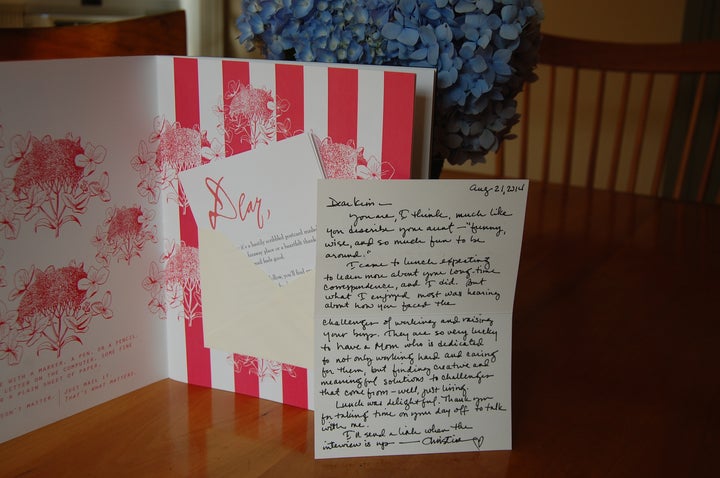 WITH A MARKER. A PEN. OR A PENCIL.
LETTER ON THE COMPUTER. SOME FINE
A PLAIN SHEET OF PAPER.
JUST MAIL IT.
DON'T MATTER. THAT'S WHAT MATTERS.
Dear,
it's a briefly scribbled postcard
faraway place or a heartfelt thank
and feels good.
Now, you'll find —
Aug 21, 2014
Dear Kim —
You are, I think, much like
you describe your aunt — "funny,
wise, and so much fun to be
around."
I came to lunch expecting
to learn more about your long-time
correspondence, and I did. But
what I enjoyed most was hearing
about how you faced the
challenges of working and raising
your boys. They are so very lucky
to have a Mom who is dedicated
to not only working hard and caring
for them, but finding creative and
meaningful solutions to challenges
that come from — well, just living.
Lunch was delightful. Thank you
for taking time on your day off to talk
with me.
I'll send a link when the
interview is up — Christine